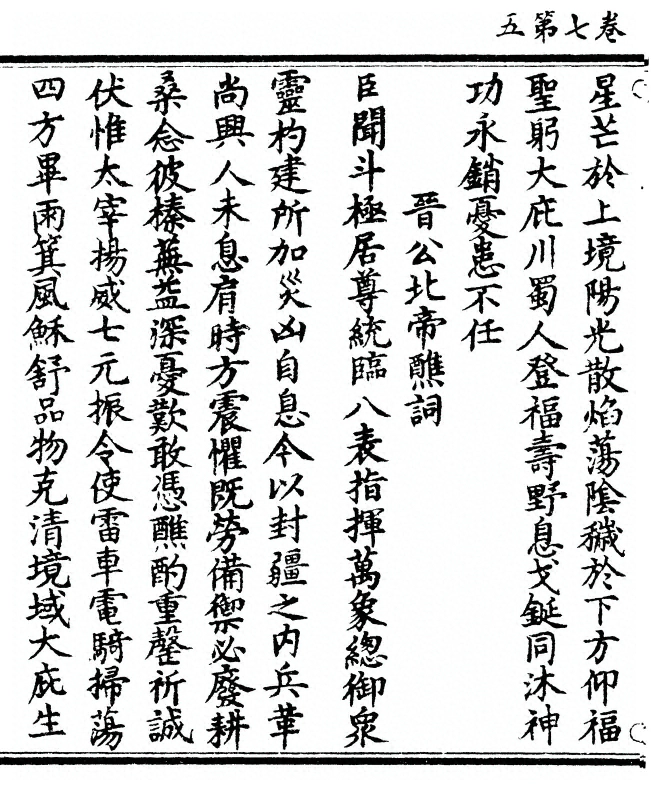 卷七第五
星芒於上境陽光散焰蕩陰穢於下方仰福
聖躬大庇川蜀人登福壽野息戈鋋同沐神
功永銷憂恚不任
晉公北帝醮詞
臣聞斗極居尊統臨八表指揮萬象總御衆
靈杓建所加災凶自息今以封疆之内兵革
尚興人未息肩時方震懼既勞備禦必廢耕
桑念彼榛蕪益深憂歎敢憑醮酌重罄祈誠
伏惟太宰揚威七元振令使雷車電騎掃蕩
四方畢雨箕風穌舒品物克清境域大庇生